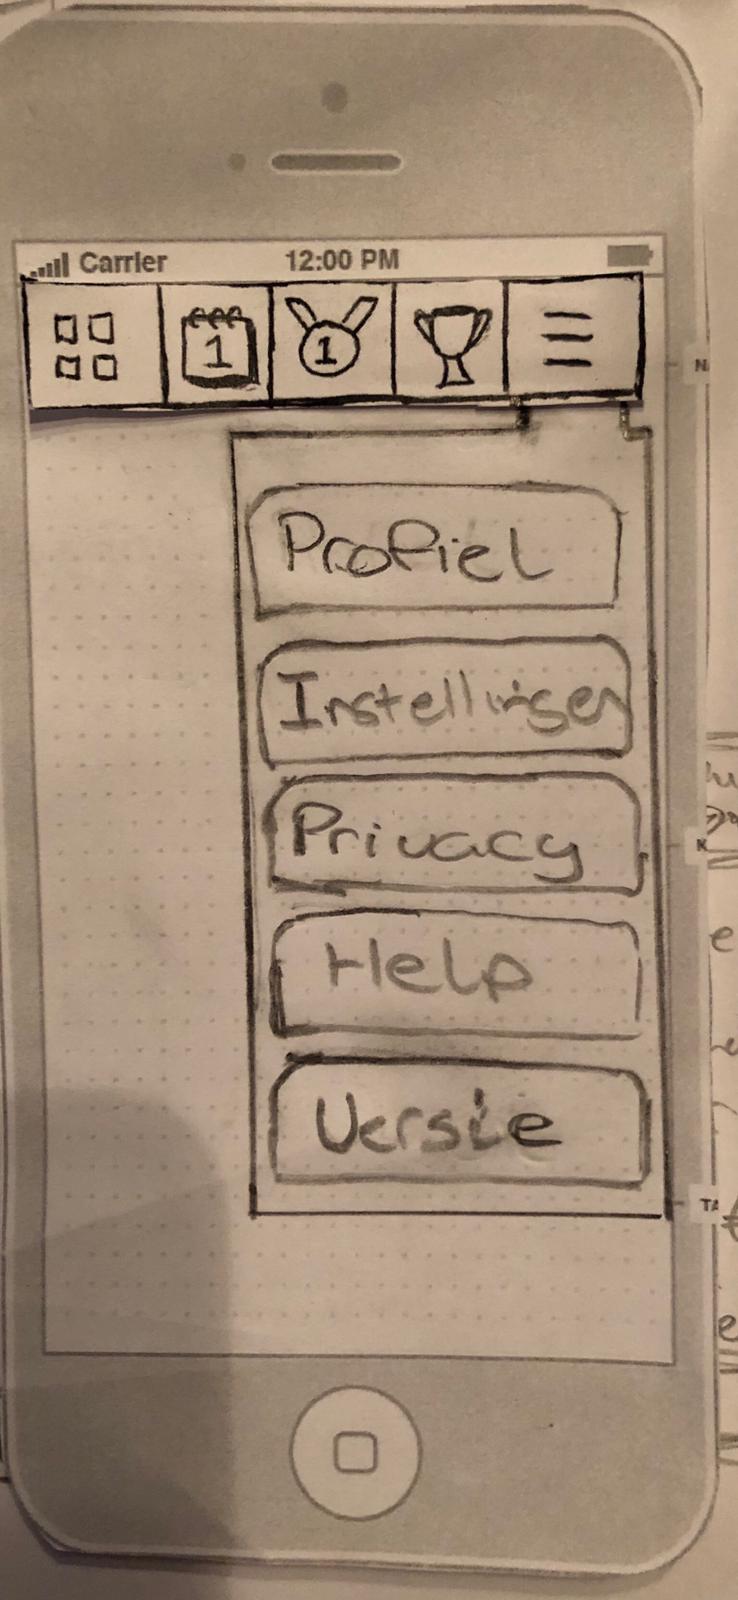 Carrier 12:00 PM
1 1
Profiel
Instellingen
Privacy
Help
Versie